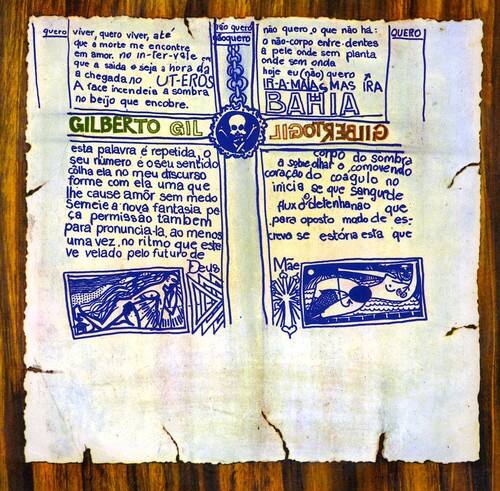 quero
viver, quero viver, até
que a morte me encontre
em amor, no in-ter-vale em
que a saida e seja a hora da
a chegada no UT-EROS
A face incendeia a sombra
no beijo que encobre.
não quero
nãoquero
não quero, o que não há:
o não-corpo entre-dentes
a pele onde sem planta
onde sem onda
hoje eu (não) quero
IR-A-MAIAS MAS IRA
BAHIA
QUERO
GILBERTO GIL
GILBERTO GIL
esta palavra é repetida, o
seu número é o seu sentido
colha ela no meu discurso
forme com ela uma que
lhe cause amôr sem medo
Semeie a nova fantasia, pe
ça permissão tambem
para pronuncia-la, ao menos
uma vez, no ritmo que este
ve velado pelo futuro de
Deus
corpo do sombra
a sobre olhar o comovendo
coração do coagulo no
inicia se que sangue de
fluxo detenha não que
para oposto modo de es-
creva se estória esta que
Mãe